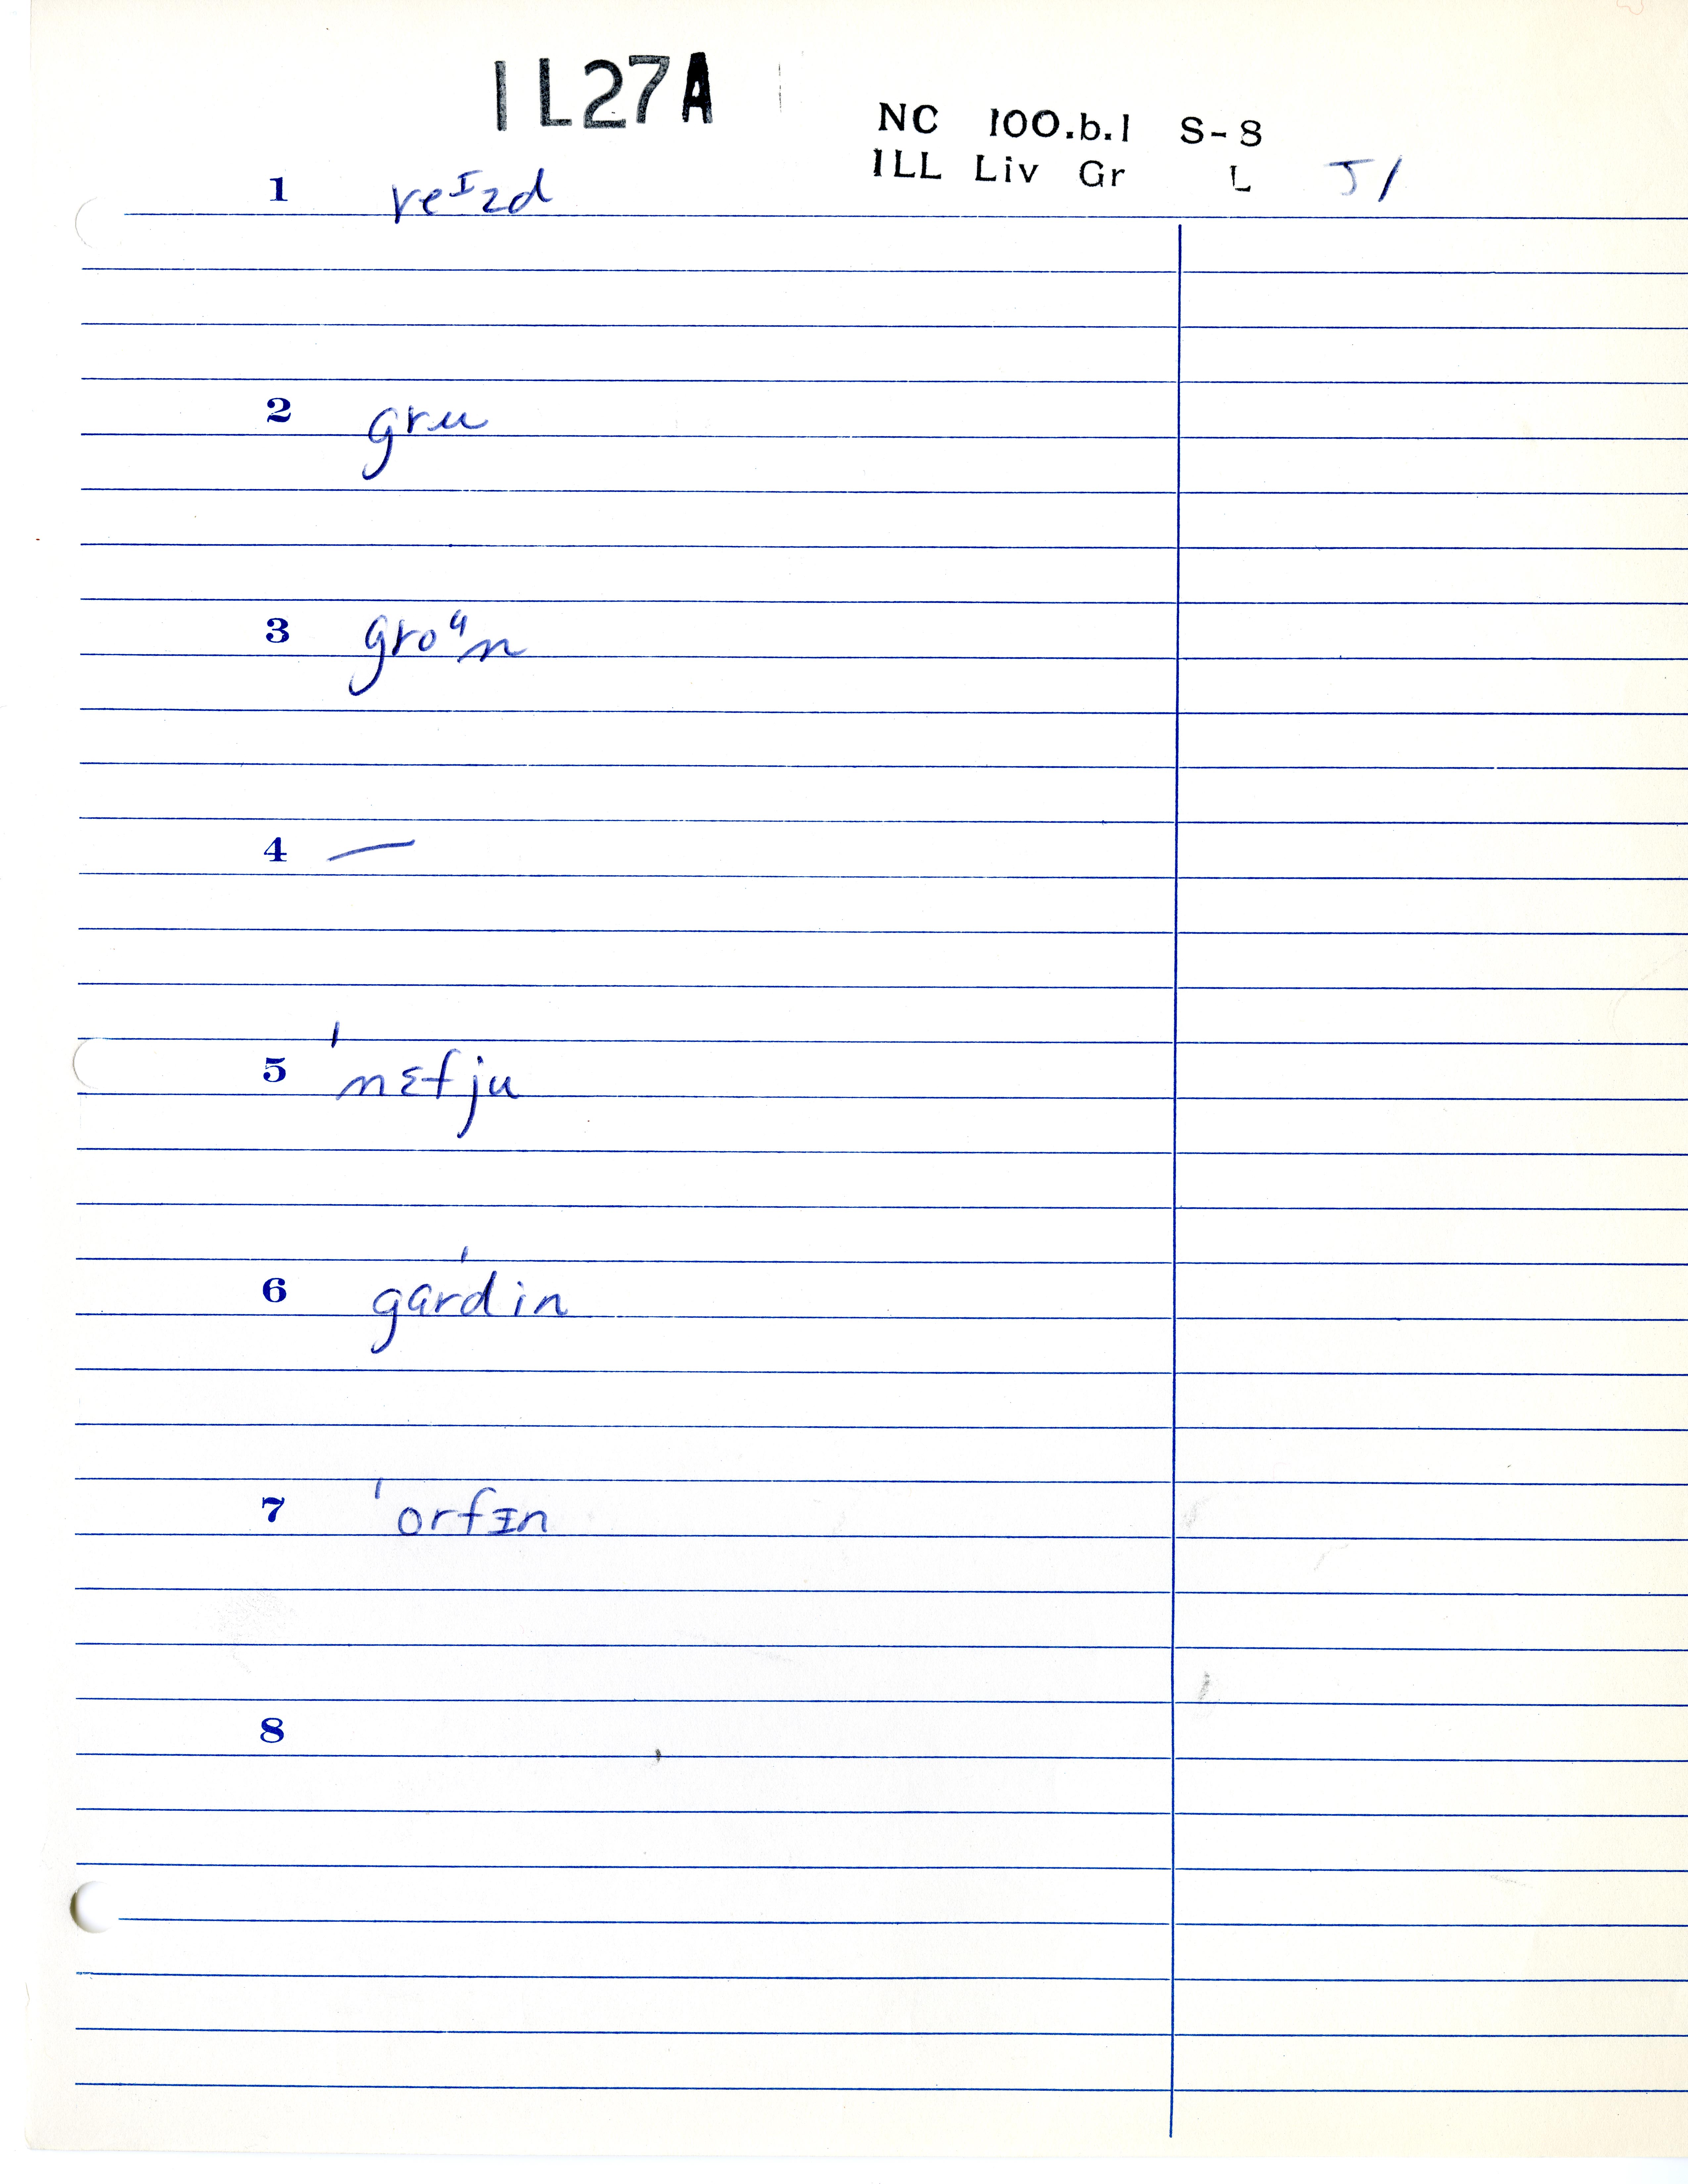 IL27A
NC 100.b.1 S-8
ILL Liv Gr L J1
1 reᴵzd
2 gru
3 groᵘn
4 —
5 ˈnɛfju
6 gɑrˈdin
7 ˈorfɪn
8